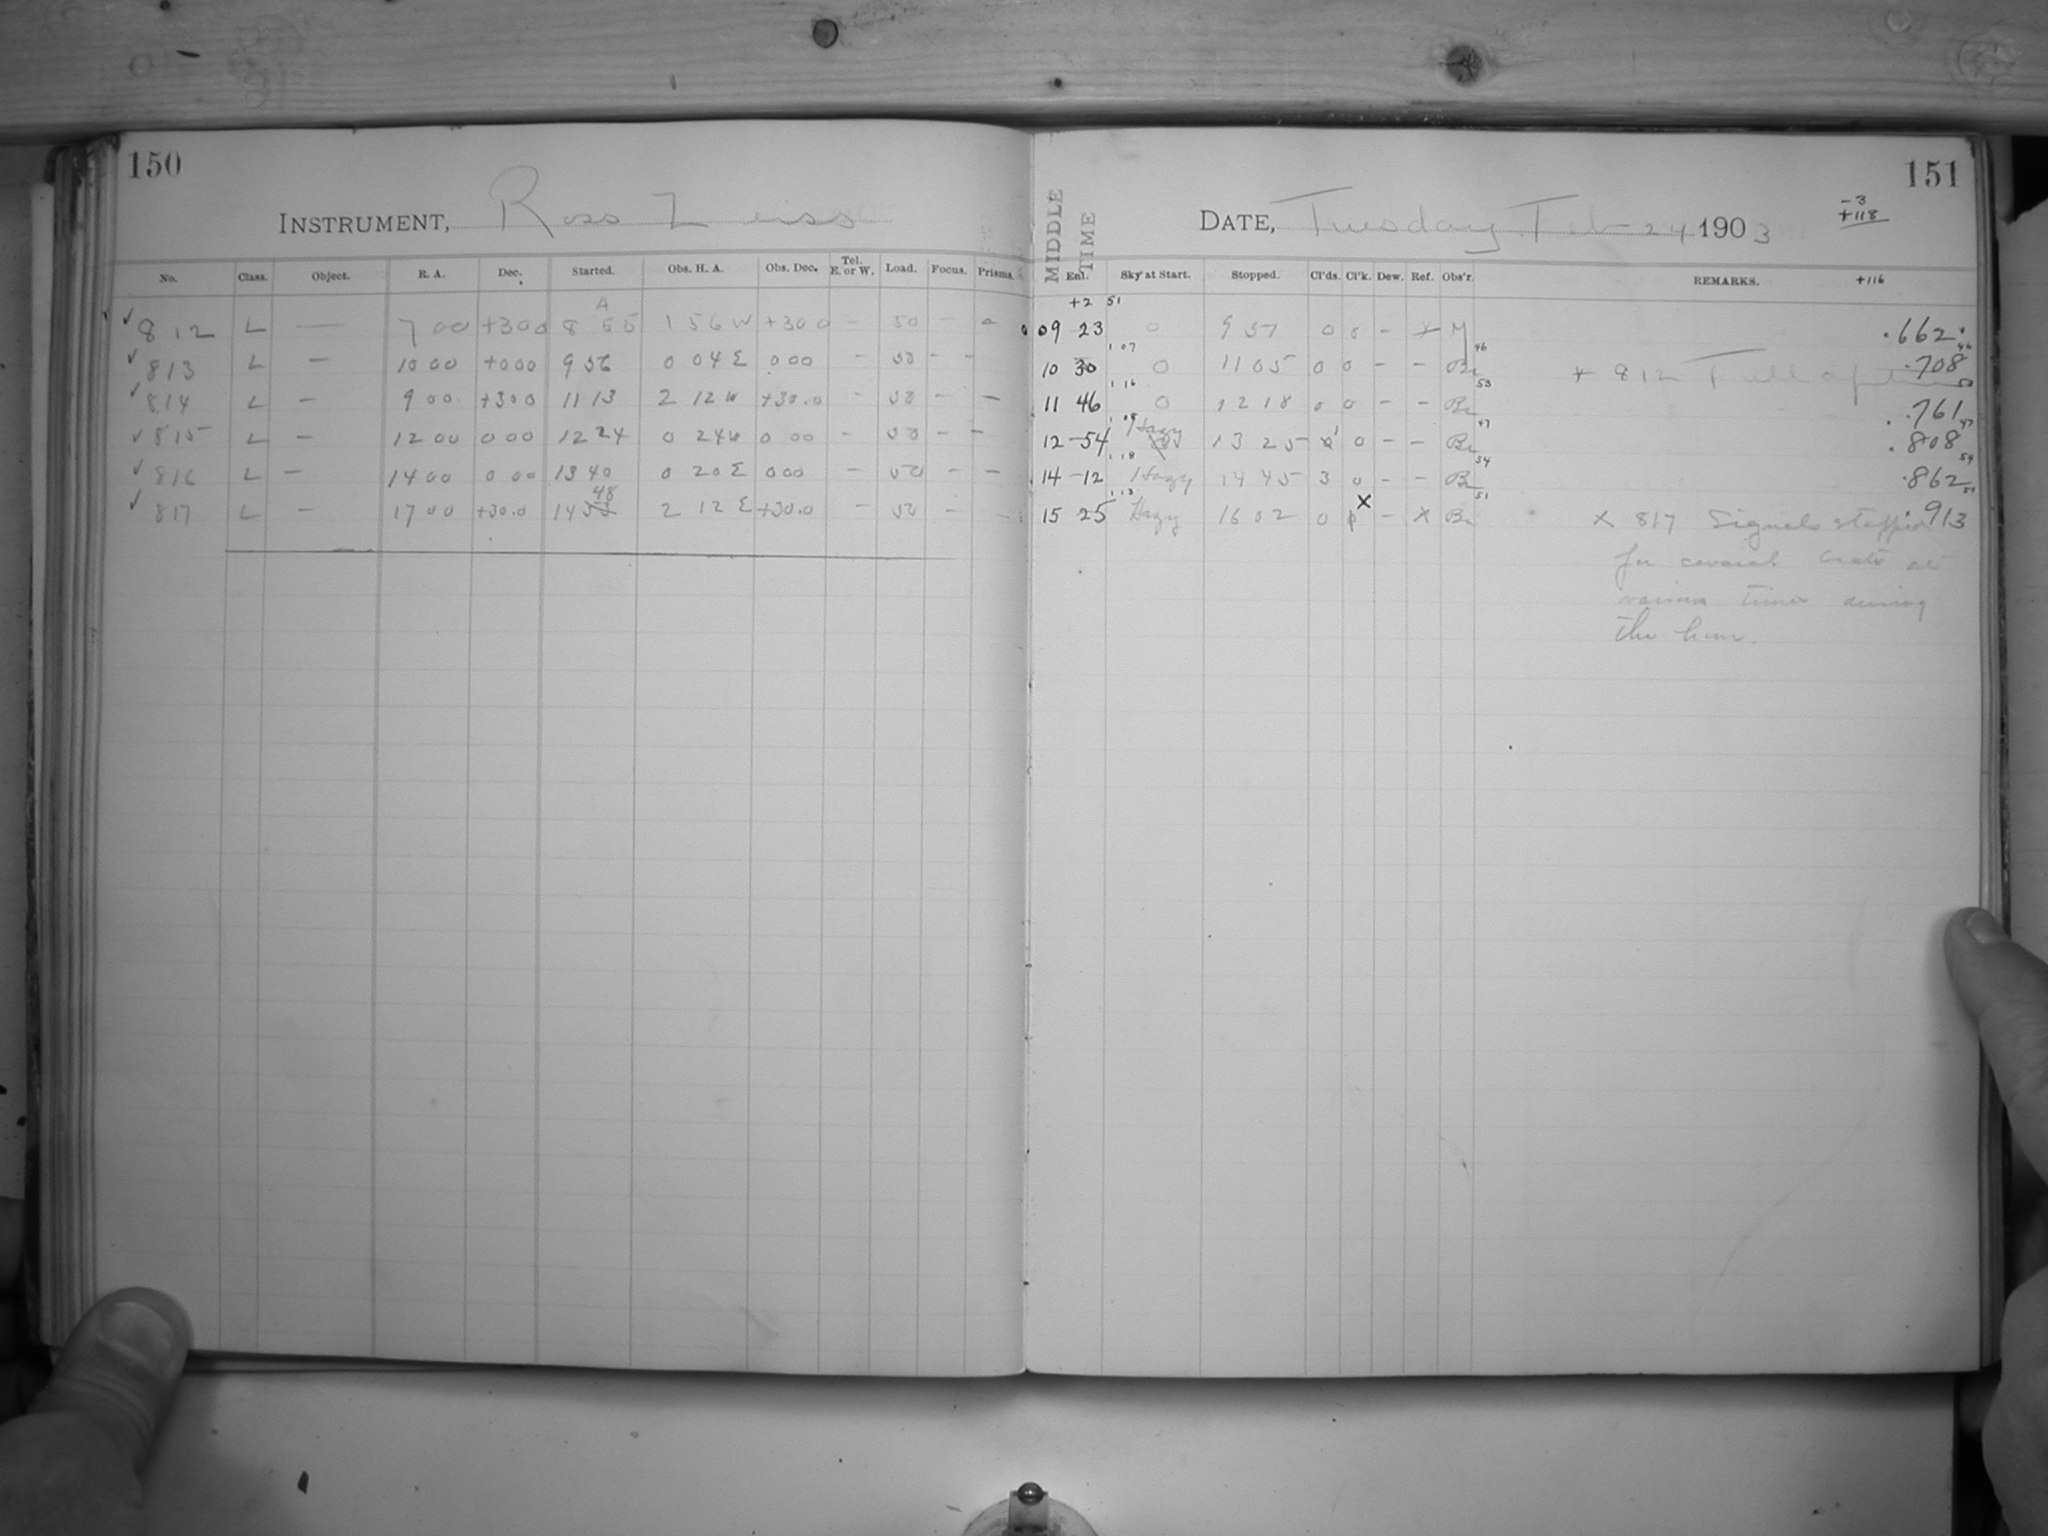 150
INSTRUMENT, Ross Zeiss
No. Class. Object. R. A. Dec. Started. Obs. H. A. Obs. Dec. Tel. E. or W. Load. Focus. Prisms.
A
✓ 812 L — 7 00 +30 0 8 55 1 56 W +30 0 - 50 - -
✓ 813 L — 10 00 +0 00 9 56 0 04 E 0 00 - 50 - -
✓ 814 L — 9 00 +30 0 11 13 2 12 W +30.0 - 50 - -
✓ 815 L — 12 00 0 00 12 24 0 24 W 0 00 - 50 - -
✓ 816 L — 14 00 0 00 13 40 0 20 E 0 00 - 50 - -
48
✓ 817 L — 17 00 +30.0 14 2 12 E +30.0 - 50 - -
151
MIDDLE TIME
DATE, Tuesday Feb 24 1903
-3
+118
Enl. Sky at Start. Stopped. Cl'ds. Cl'k. Dew. Ref. Obs'r. REMARKS. +116
+2 51
09 23 0 9 51 0 0 - x M .662
1.07 46
10 30 0 11 05 0 0 - - Br x 812 Full .708
1.16 53
11 46 0 12 18 0 0 - - Br .761
1.08 47
12-54 Hazy 13 25 0 - - Br .808
1.18 54
14-12 Hazy 14 45 3 0 - - Br .862
1.13 51
15 25 Hazy 16 02 0 x - x Br x 817 Signals stopped .913
for several beats at
various times during
the hour.